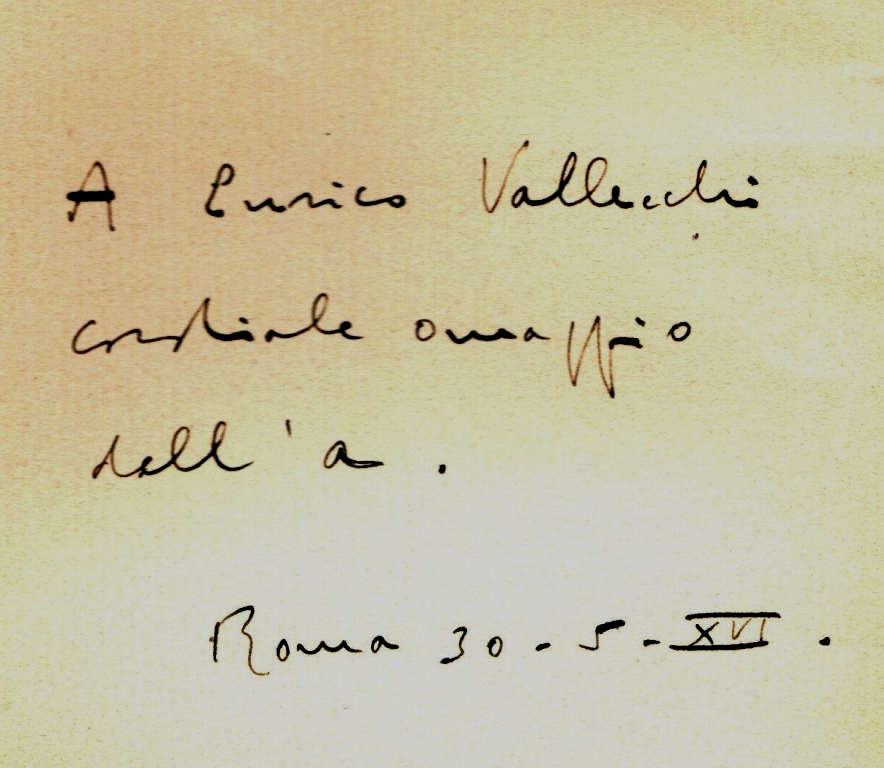 A Enrico Vallecchi
cordiale omaggio
dall'a.
Roma 30-5-XVI.